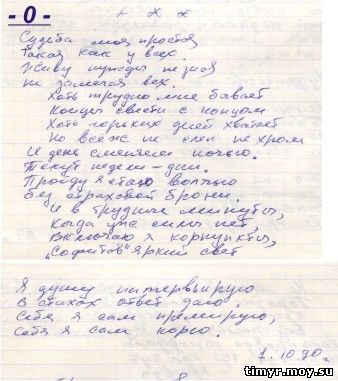 - 0 -
+ х х
Судьба моя простая
Такая как у всех.
Живу нужды не зная
не замечая вех.
Хоть трудно мне бывает
Концы свести с концом
Хоть горьких дней хватает
Но всё ж не слеп не хром
И день сменяем ночью.
Текут недели - дни.
Пройду я стаю волчью
без страховой брони.
И в трудные минуты,
Когда уже силы нет,
Включаю я корпункты,
"Софитов" яркий свет
Я душу интервьюирую
В стихах ответ даю.
Себя я сам премирую,
Себя я сам корю.
1.10.90г.
timyr.moy.su